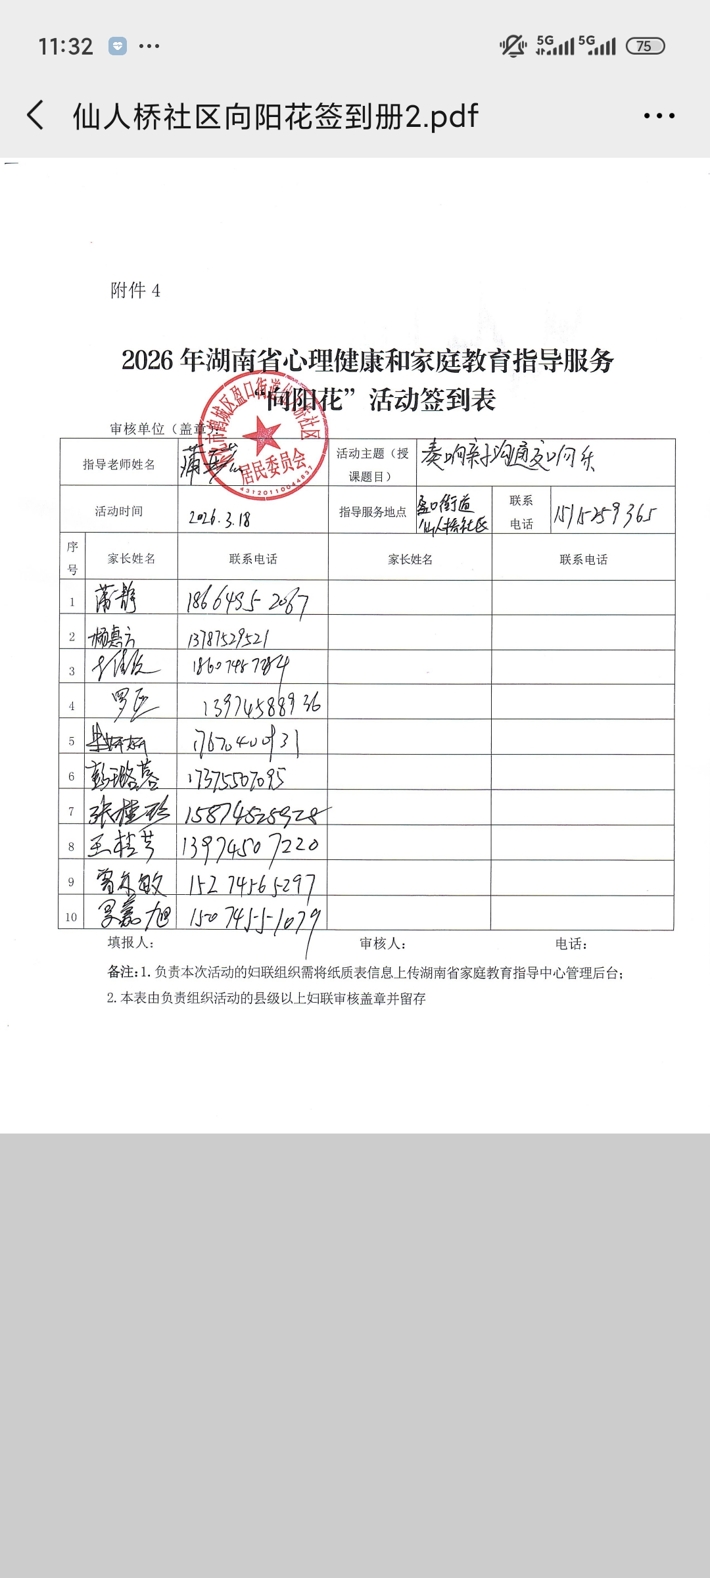 11:32
5G 5G 75
仙人桥社区向阳花签到册2.pdf
附件 4
2026 年湖南省心理健康和家庭教育指导服务
“向阳花”活动签到表
审核单位（盖章）：
居民委员会
指导老师姓名 蒲 活动主题（授课题目） 奏响亲子沟通交响乐
活动时间 2026.3.18 指导服务地点 盈口街道仙人桥社区 联系电话 15115259365
序号 家长姓名 联系电话 家长姓名 联系电话
1 蒲静
2 杨惠方 13787529521
3
4 罗 13974588936
5
6 17375507095
7 张桂珍 15874525928
8 王桂芳 13974507220
9 15274565297
10 旭 15074551079
填报人： 审核人： 电话：
备注：1. 负责本次活动的妇联组织需将纸质表信息上传湖南省家庭教育指导中心管理后台；
2. 本表由负责组织活动的县级以上妇联审核盖章并留存